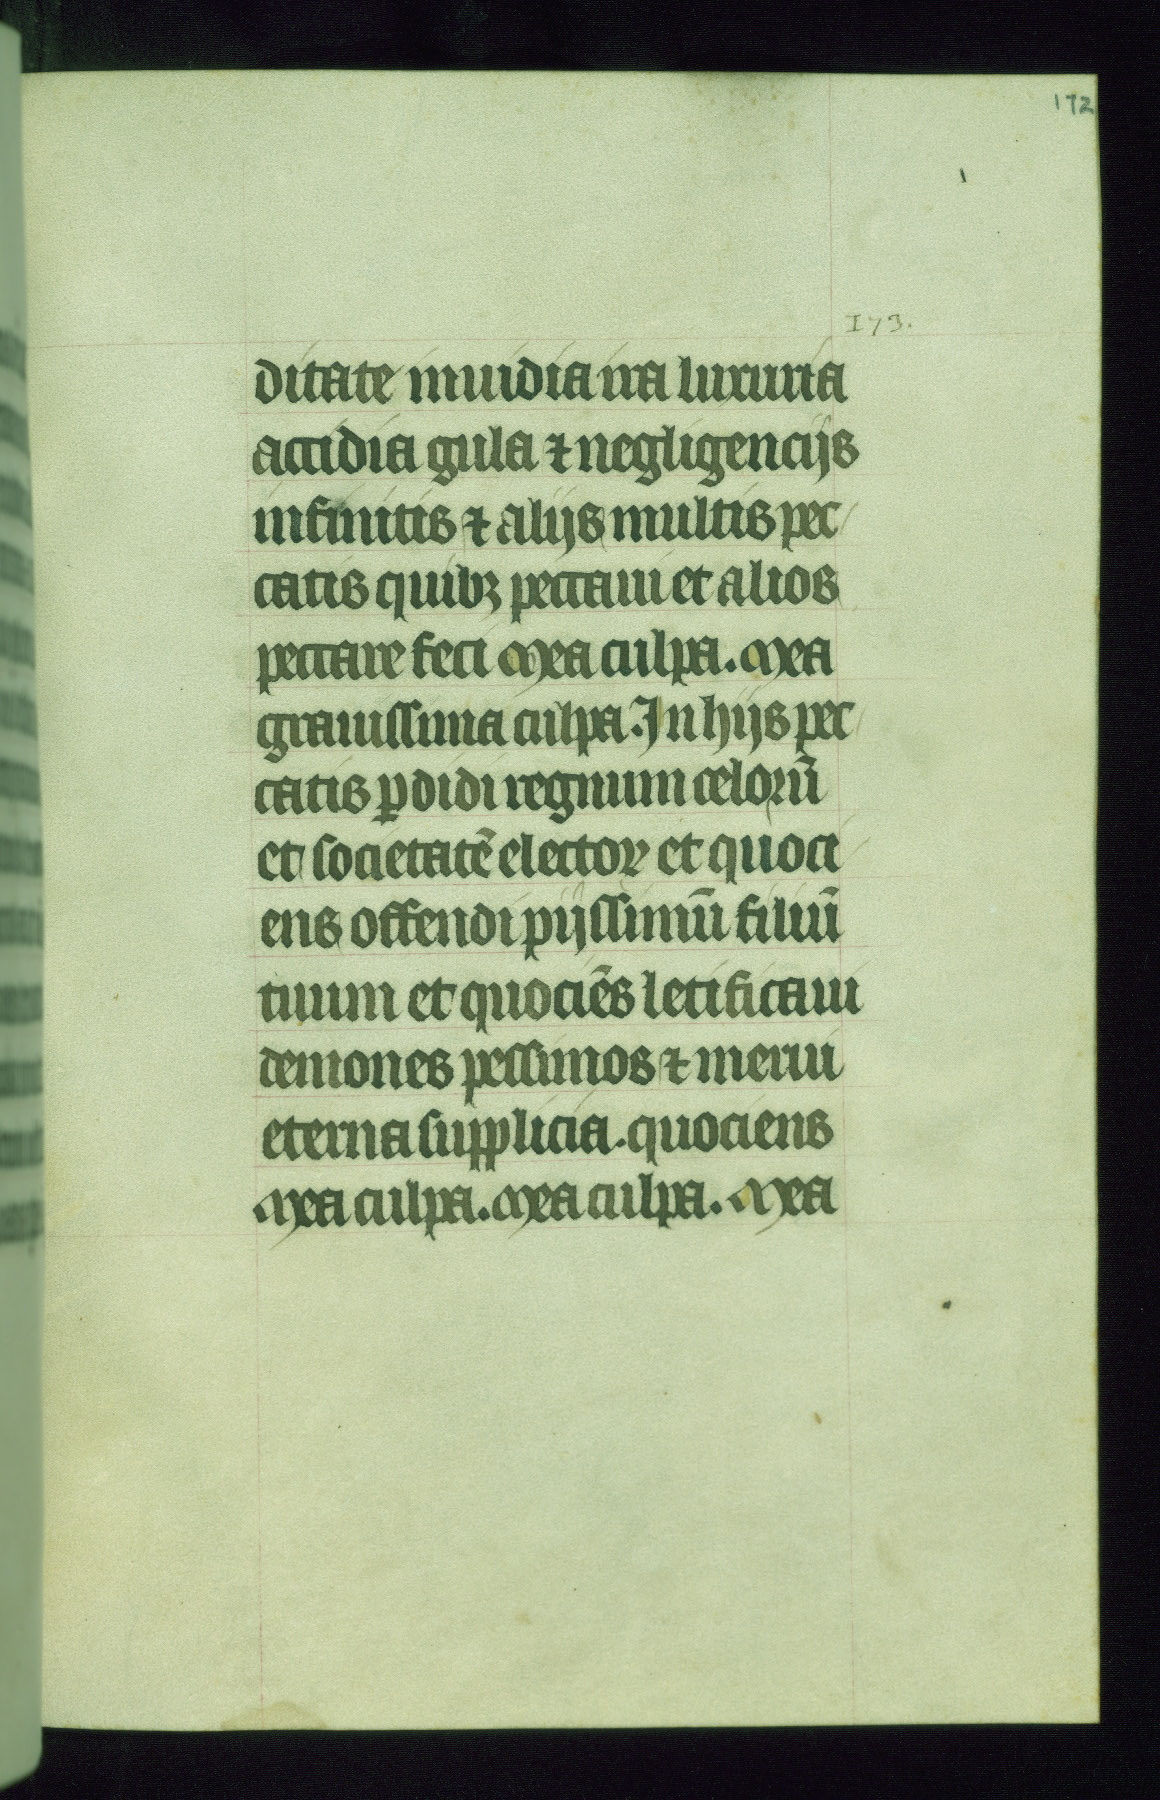 172
173.
ditate inuidia ira luxuria
accidia gula ⁊ negligencijs
infinitis ⁊ alijs multis pec
catis quibꝫ peccaui et alios
peccare feci Mea culpa. Mea
grauissima culpa. In hijs pec
catis ꝑdidi regnum celorū
et societatē electoꝝ et quoci
ens offendi pijssimū filiū
tuum et quociēs letificaui
demones pessimos ⁊ merui
eterna supplicia. quociens
Mea culpa. Mea culpa. Mea